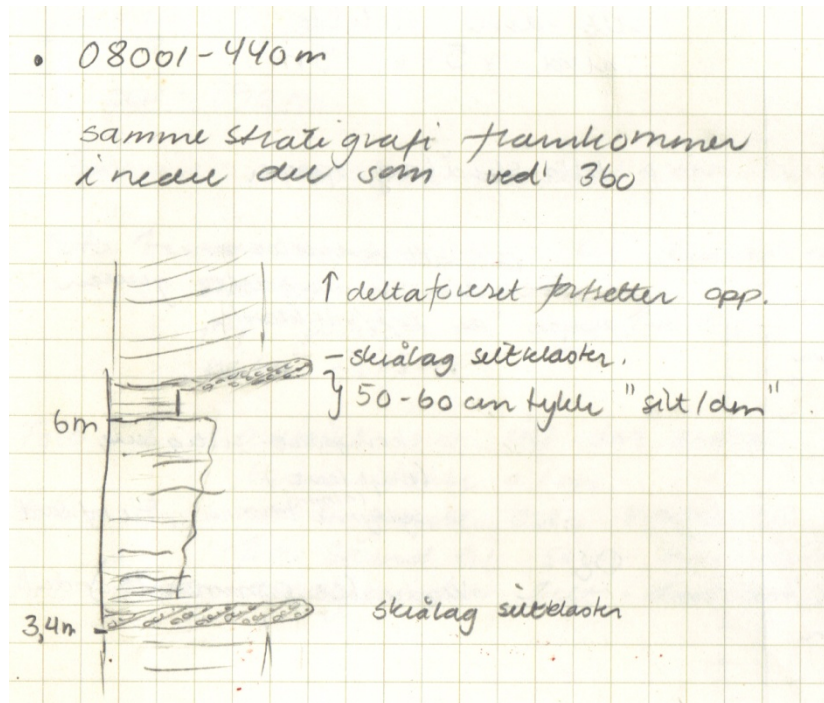 • 08001-440m
samme stratigrafi framkommer
i nedre del som ved 360
↑ deltaforeset fortsetter opp.
- skrålag siltklaster.
} 50-60 cm tykk "silt/dm"
6m
3,4m
skrålag siltklaster